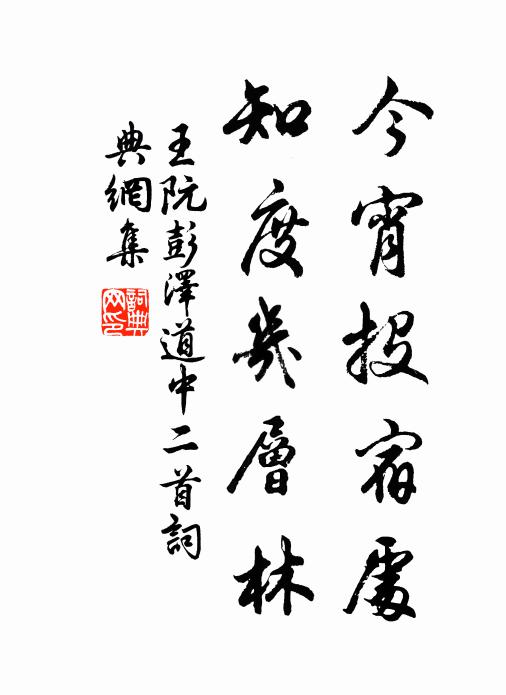 今宵投宿處
知度幾層林
王阮彭澤道中二首詞
典網集
詞典網印